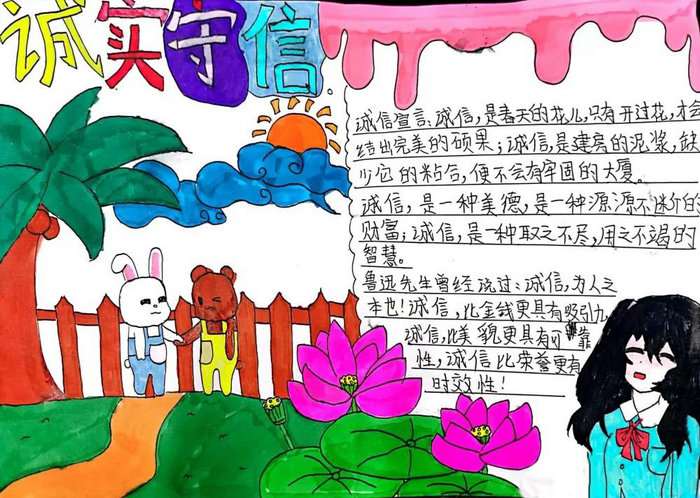 诚实守信
诚信宣言:诚信,是春天的花儿,只有开过花,才会
结出完美的硕果;诚信,是建房的泥浆,缺
少它的粘合,便不会有牢固的大厦。
诚信,是一种美德,是一种源源不断的
财富;诚信,是一种取之不尽,用之不竭的
智慧。
鲁迅先生曾经说过:诚信,为人之
本也!诚信,比金钱更具有吸引力
诚信,比美貌更具有可靠
性,诚信比荣誉更有
时效性!